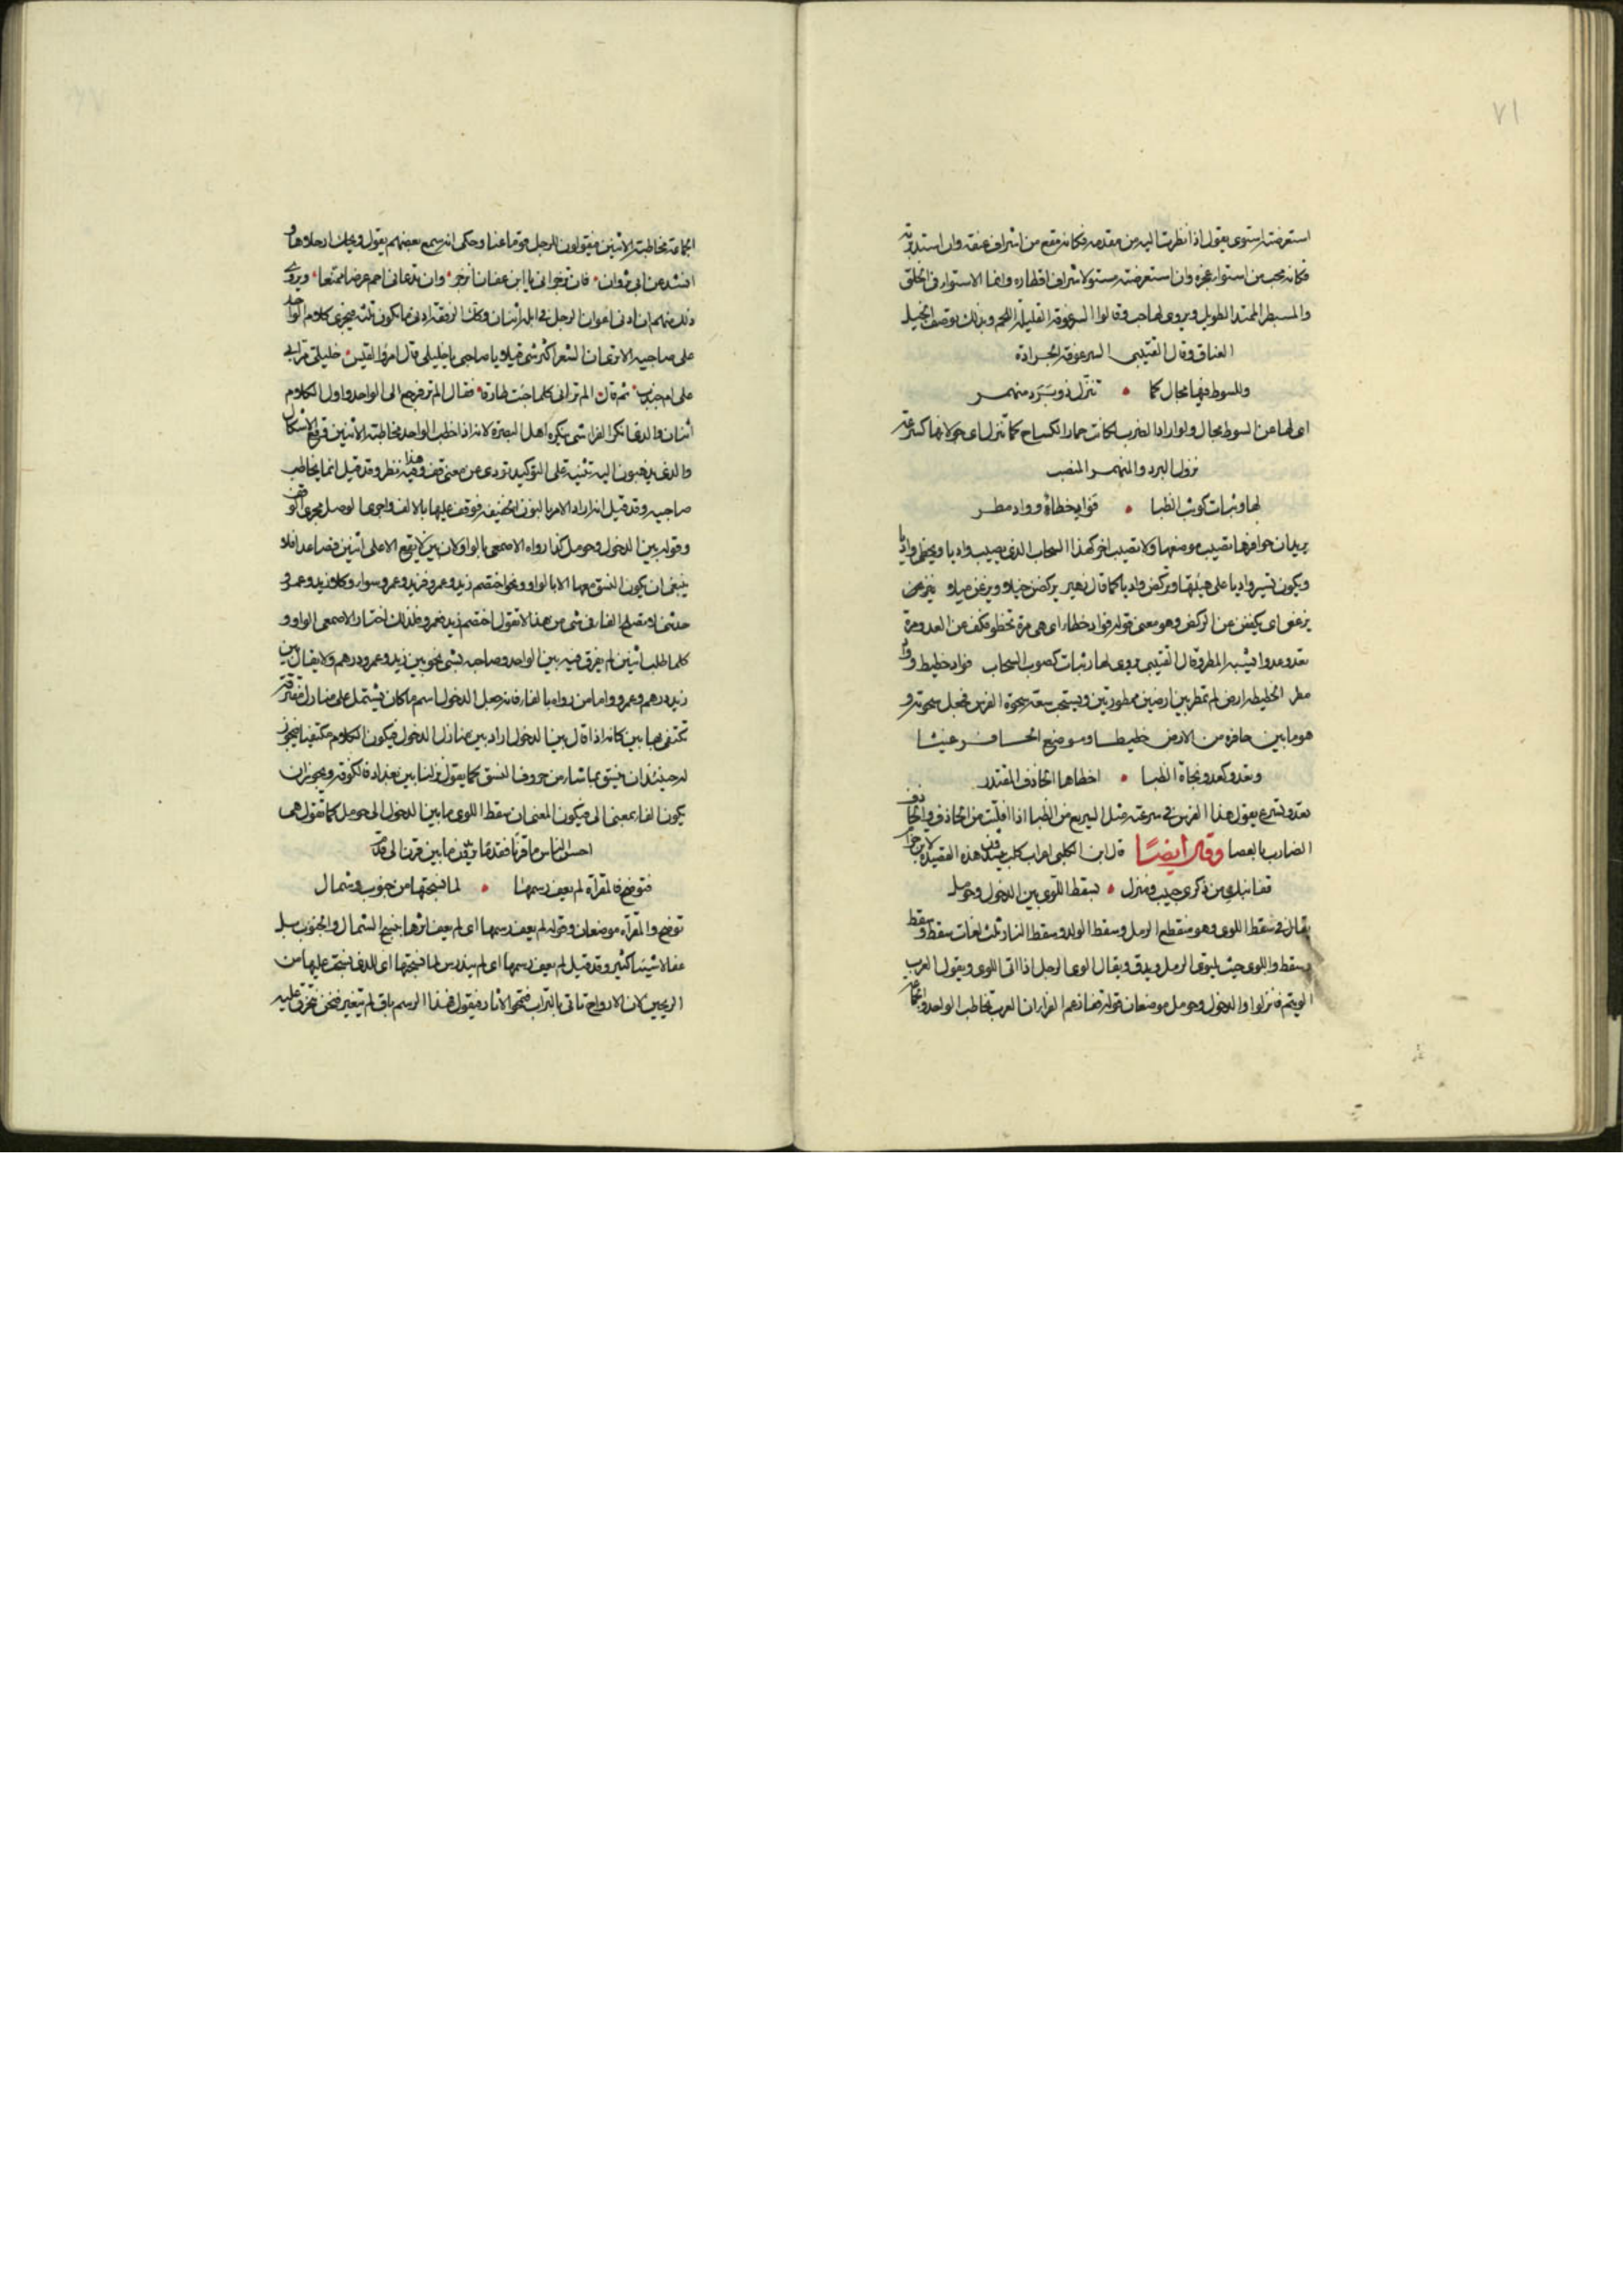 ٧١
استعرضته استوى يقول اذا نظرت اليه من مقدمه فكانه مقع من اشراف عنقه وان استدبرته
فكانه مجب من استواء عجزه وان استعرضته مستو لاشراف اقطاره وانما الاستواء فى الخلق
والمسبطر الممتد الطويل ويروى لها جب وقالوا السرعوفة القليلة اللحم وبذلك توصف الخيل
العتاق وقال القتيبى السرعوفة الجرادة
وللسوط فيها مجال كما • تنزل ذو برد منهمر
اى لها من السوط مجال ولو اراد الضرب لكانت حمار الكساح كما تنزل اى جولانها كسرعة
نزول البرد والمنهمر المنصب
لها وثبات كوثب الظبا • فواد خطاة وواد مطر
يريد ان حوافرها تصيب موضعا ولا تصيب اخر كهذا السحاب الذى يصيب واديا ويخطى واديا
ويكون تسير واديا على هينتها وتركض واديا كما قال زهير يركضن ميلا وينزعن ميلا ينزعن
ينزعن اى يكففن من الركض وهو معنى قوله فواد خطاء اى هى مرة تخطو فتكف من العدو ومرة
تعدو عدوا يشبه المطر وقال القتيبى يروى لها وثبات كصوب السحاب فواد خطيط وواد
مطر الخطيطة ارض لم تمطر بين ارضين ممطورتين ويستحب سعة شحوة الفرس فجعل شحوته و
هو ما بين حافره من الارض خطيطا وموضع الحافر غيثا
وتعدو كعدو نجاة الظبا • اخطاها الحاذف المقتدر
تعدو تسرع يقول هذا الفرس فى سرعته مثل السريع من الظبا اذا افلتت من الحاذف والحاذف
الضارب بالعصا وقال ايضًا قال ابن الكلبى اعراب كلب ينشدون هذه القصيدة لابن حذام
قفا نبك من ذكرى حبيب ومنزل • بسقط اللوى بين الدخول وحومل
يقال فى سقط اللوى وهو منقطع الرمل وسقط الولد وسقط النار ثلث لغات سقط وسقط
وسقط واللوى حيث يلتوى الرمل ويدق ويقال الوى الرجل اذا اتى اللوى ويقول العرب
الويتم فانزلوا والدخول وحومل موضعان قوله قفا زعم الفراء ان العرب تخاطب الواحد والجماعة
الجماعة مخاطبة الاثنين فيقولون للرجل قوما عنا وحكى انه سمع بعضهم يقول ويحك ارحلاها و
انشد عن ابى ثروان • فان تزجرانى يا ابن عفان انزجر • وان تدعانى احم عرضا ممنعا • ويروى
ذلك منهم ان ادنى اعوان الرجل فى ابله اثنان وكذلك الرفقة ادنى ما تكون ثلثة فجرى كلام الواحد
على صاحبيه الا ترى ان الشعراء اكثر شى قيلا يا صاحبى يا خليلى قال امرؤ القيس • خليلى مرا بى
على ام جندب • ثم قال • الم تر انى كلما جئت طارقا • فقال الم تر فرجع الى الواحد واول الكلام
اثنان والذى انكر الفراء شى ينكره اهل البصرة لانه اذا خاطب الواحد مخاطبة الاثنين وقع الاشكال
والذى يذهبون اليه تثنية على التوكيد تودى عن معنى قف قف وفى هذا نظر وقد قيل انما يخاطب
صاحبيه وقد قيل انه اراد الامر بالنون الخفيفة فوقف عليها بالالف واجرى الوصل مجرى الوقف
وقوله بين الدخول وحومل كذا رواه الاصمعى بالواو لان بين لا تقع الا على اثنين فصاعدا فلا
ينبغى ان يكون النسق معها الا بالواو ونحو اختصم زيد وعمرو فزيد وعمرو سواء وكلا زيد وعمرو
حدثنى ولا يصلح الفاء فى شى من هذا لا تقول اختصم زيد فعمرو فلذلك اختار الاصمعى الواو و
كلما طلب اثنين لم يفرق فيه بين الواحد وصاحبه بشى نحو بين زيد وعمرو درهم ولا يقال بين
زيد درهم وعمرو واما من رواه بالفاء فانه جعل الدخول اسم مكان يشتمل على منازل مفترقة
تكتفى بها بين كانه اذا قال بين الدخول اراد بين منازل الدخول فيكون الكلام مكتفيا فيجوز
له حينئذ ان ينسق بما شاء من حروف النسق كما يقول نزلنا بين بغداد فالكوفة ويجوز ان
يكون الفاء بمعنى الى فيكون المعنى ان سقط اللوى ما بين الدخول الى حومل كما تقول هى
احسن الناس ما قرنا فقدما يريدون ما بين قرن الى قدم
فتوضح فالمقراة لم يعف رسمها • لما نسجتها من جنوب وشمال
توضح والمقراة موضعان وقوله لم يعف رسمها اى لم يعف اثرها لنسج الشمال والجنوب بل
عفا لاشياء كثير وقد قيل لم يعف رسمها اى لم يندرس لما نسجتها اى للذى نسجت عليها من
الريحين لان الارواح تاتى بالتراب فتمحو الاثار فيقول هذا الرسم باق لم يتغير فنحن نحزن عليه